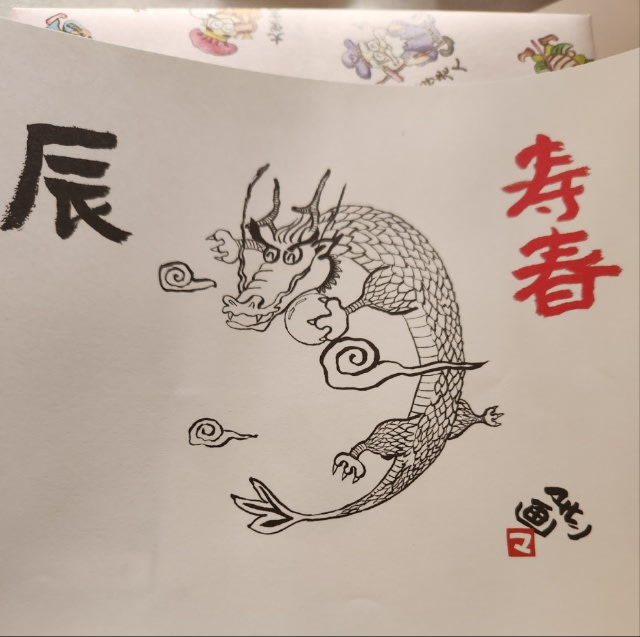 辰
寿春
画
マ